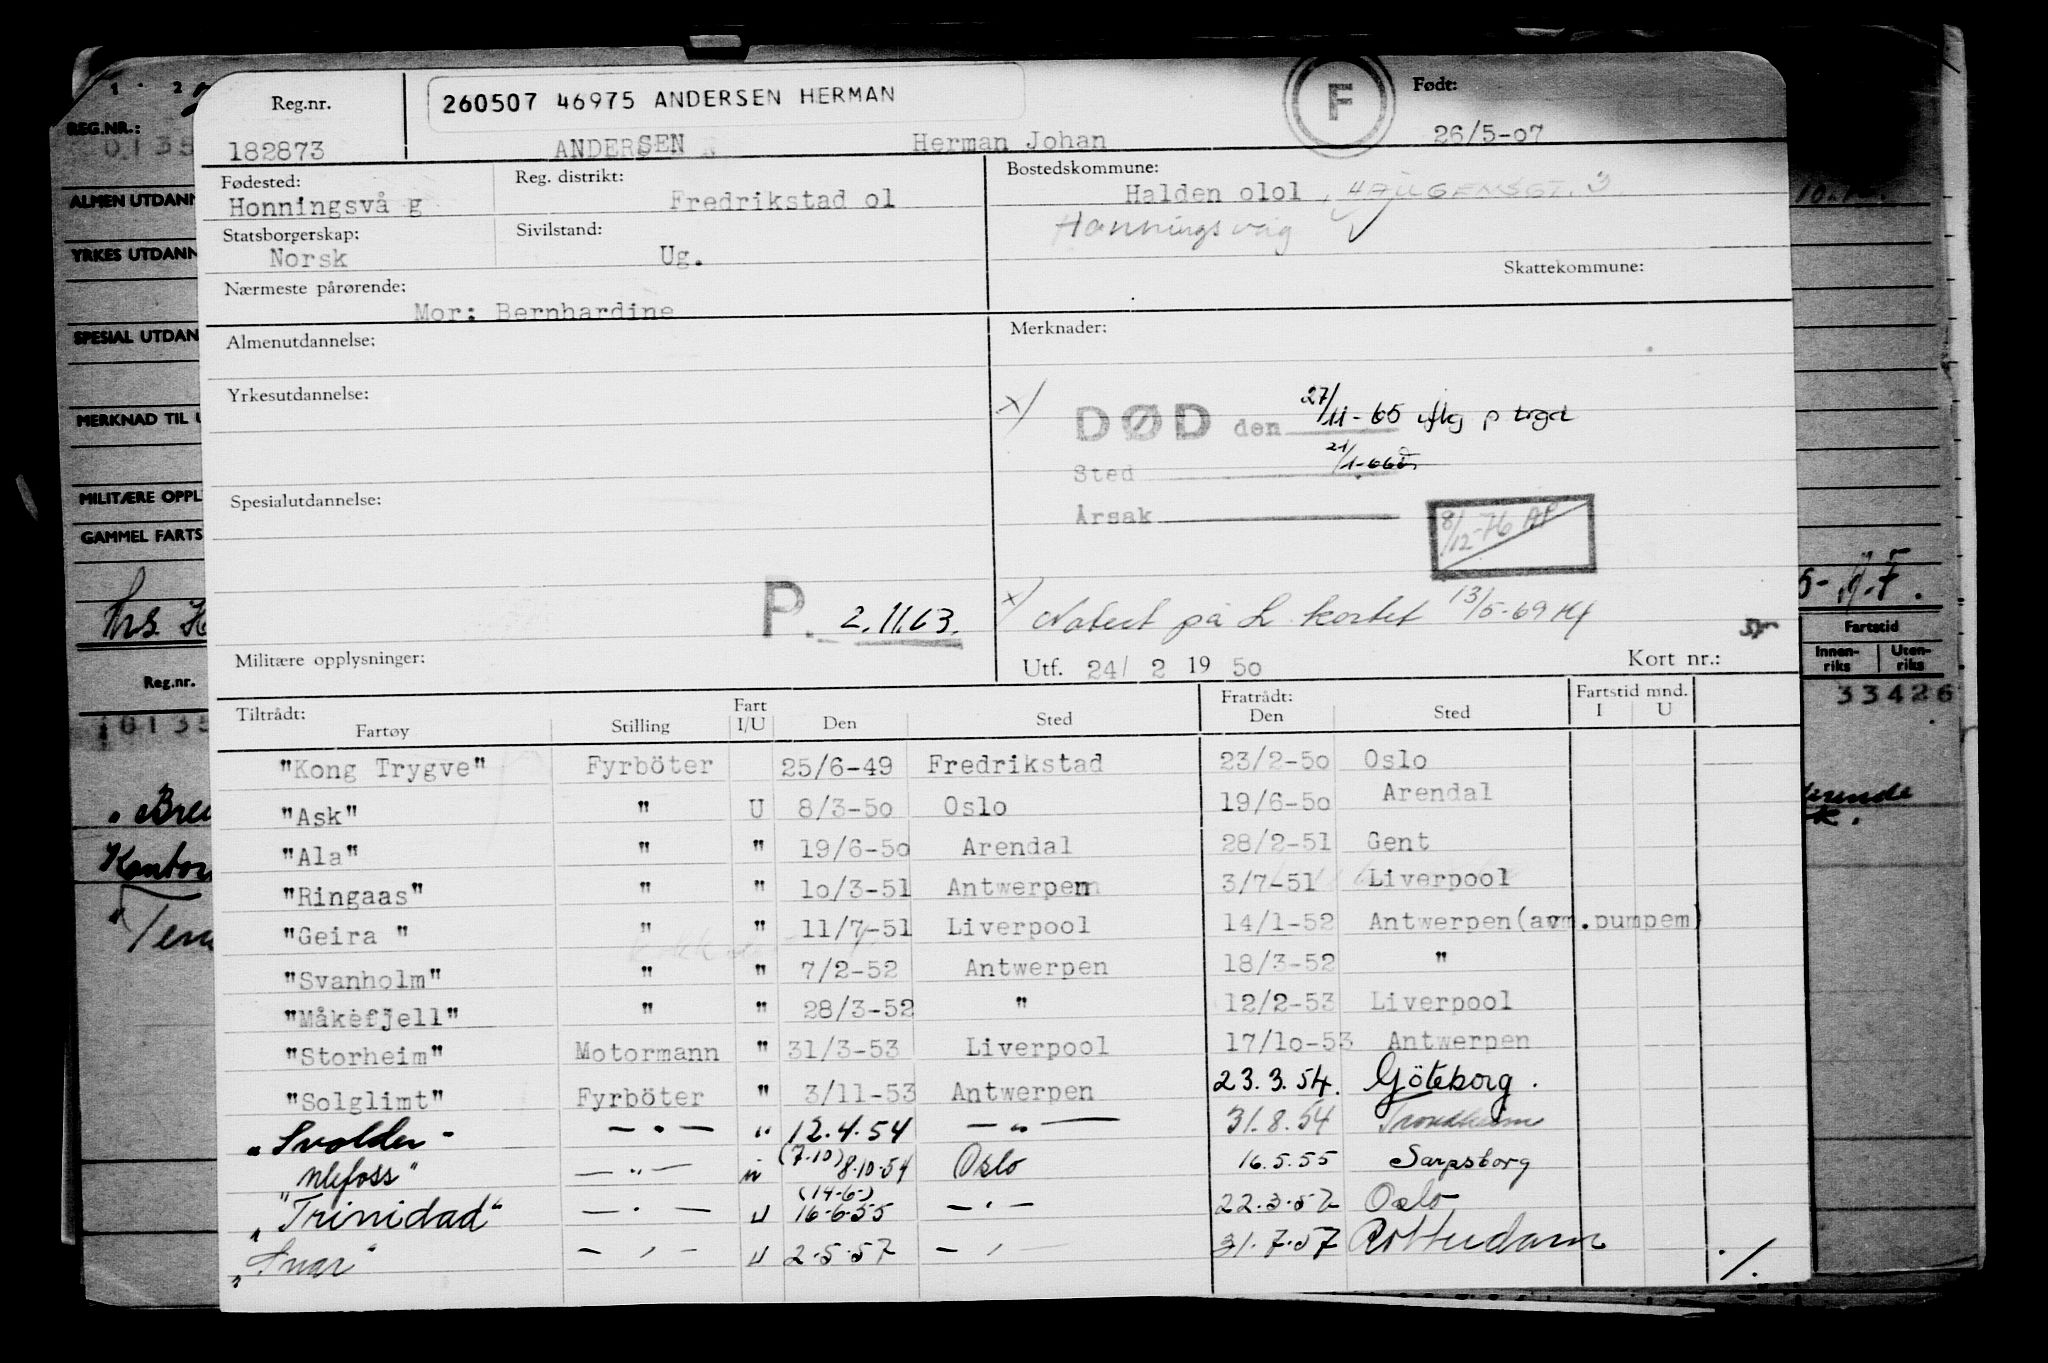 260507 46975 ANDERSEN HERMAN
Reg.nr.
182873
ANDERSEN Herman Johan
F
Født:
26/5-07
Fødested:
Honningsvå g
Reg. distrikt:
Fredrikstad ol
Bostedskommune:
Halden olol, HAUGENSGT. 3
Honningsvåg
Statsborgerskap:
Norsk
Sivilstand:
Ug.
Skattekommune:
Nærmeste pårørende:
Mor: Bernhardine
Almenutdannelse:
Merknader:
Yrkesutdannelse:
x) DØD den 27/11-65 iflg
Sted
Årsak
8/12-76 AP
Spesialutdannelse:
P. 2.11.63.
x) Notert på L kortet 13/5-69
Militære opplysninger:
Utf. 24/ 2 19 50 Kort nr.:
Tiltrådt: Fratrådt: Fartstid mnd.
Fartøy Stilling Fart I/U Den Sted Den Sted I U
"Kong Trygve" Fyrböter 25/6-49 Fredrikstad 23/2-50 Oslo
"Ask" " U 8/3-50 Oslo 19/6-50 Arendal
"Ala" " " 19/6-50 Arendal 28/2-51 Gent
"Ringaas" " " 10/3-51 Antwerpen 3/7-51 Liverpool
"Geira " " " 11/7-51 Liverpool 14/1-52 Antwerpen(avm.pumpem)
"Svanholm" " " 7/2-52 Antwerpen 18/3-52 "
"Måkefjell" " " 28/3-52 " 12/2-53 Liverpool
"Storheim" Motormann " 31/3-53 Liverpool 17/10-53 Antwerpen
"Solglimt" Fyrböter " 3/11-53 Antwerpen 23.3.54. Göteborg.
"Svolder" — " — " 12.4.54 — " — 31.8.54 Trondheim
Ulefoss" — " — (7.10) 8.10.54 Oslo 16.5.55 Sarpsborg
"Trinidad" — " — U (14-6-) 16-6-55 — " — 22.3.57 Oslo
"Snar" — " — U 2.5.57 — " — 31.7.57 Rotterdam ./.
REG.NR.:
ALMEN UTDANN
YRKES UTDANN
SPESIAL UTDAN
MERKNAD TIL U
MILITÆRE OPPL
GAMMEL FARTS
Reg.nr.
Fartstid
Innen-riks Uten-riks
33426